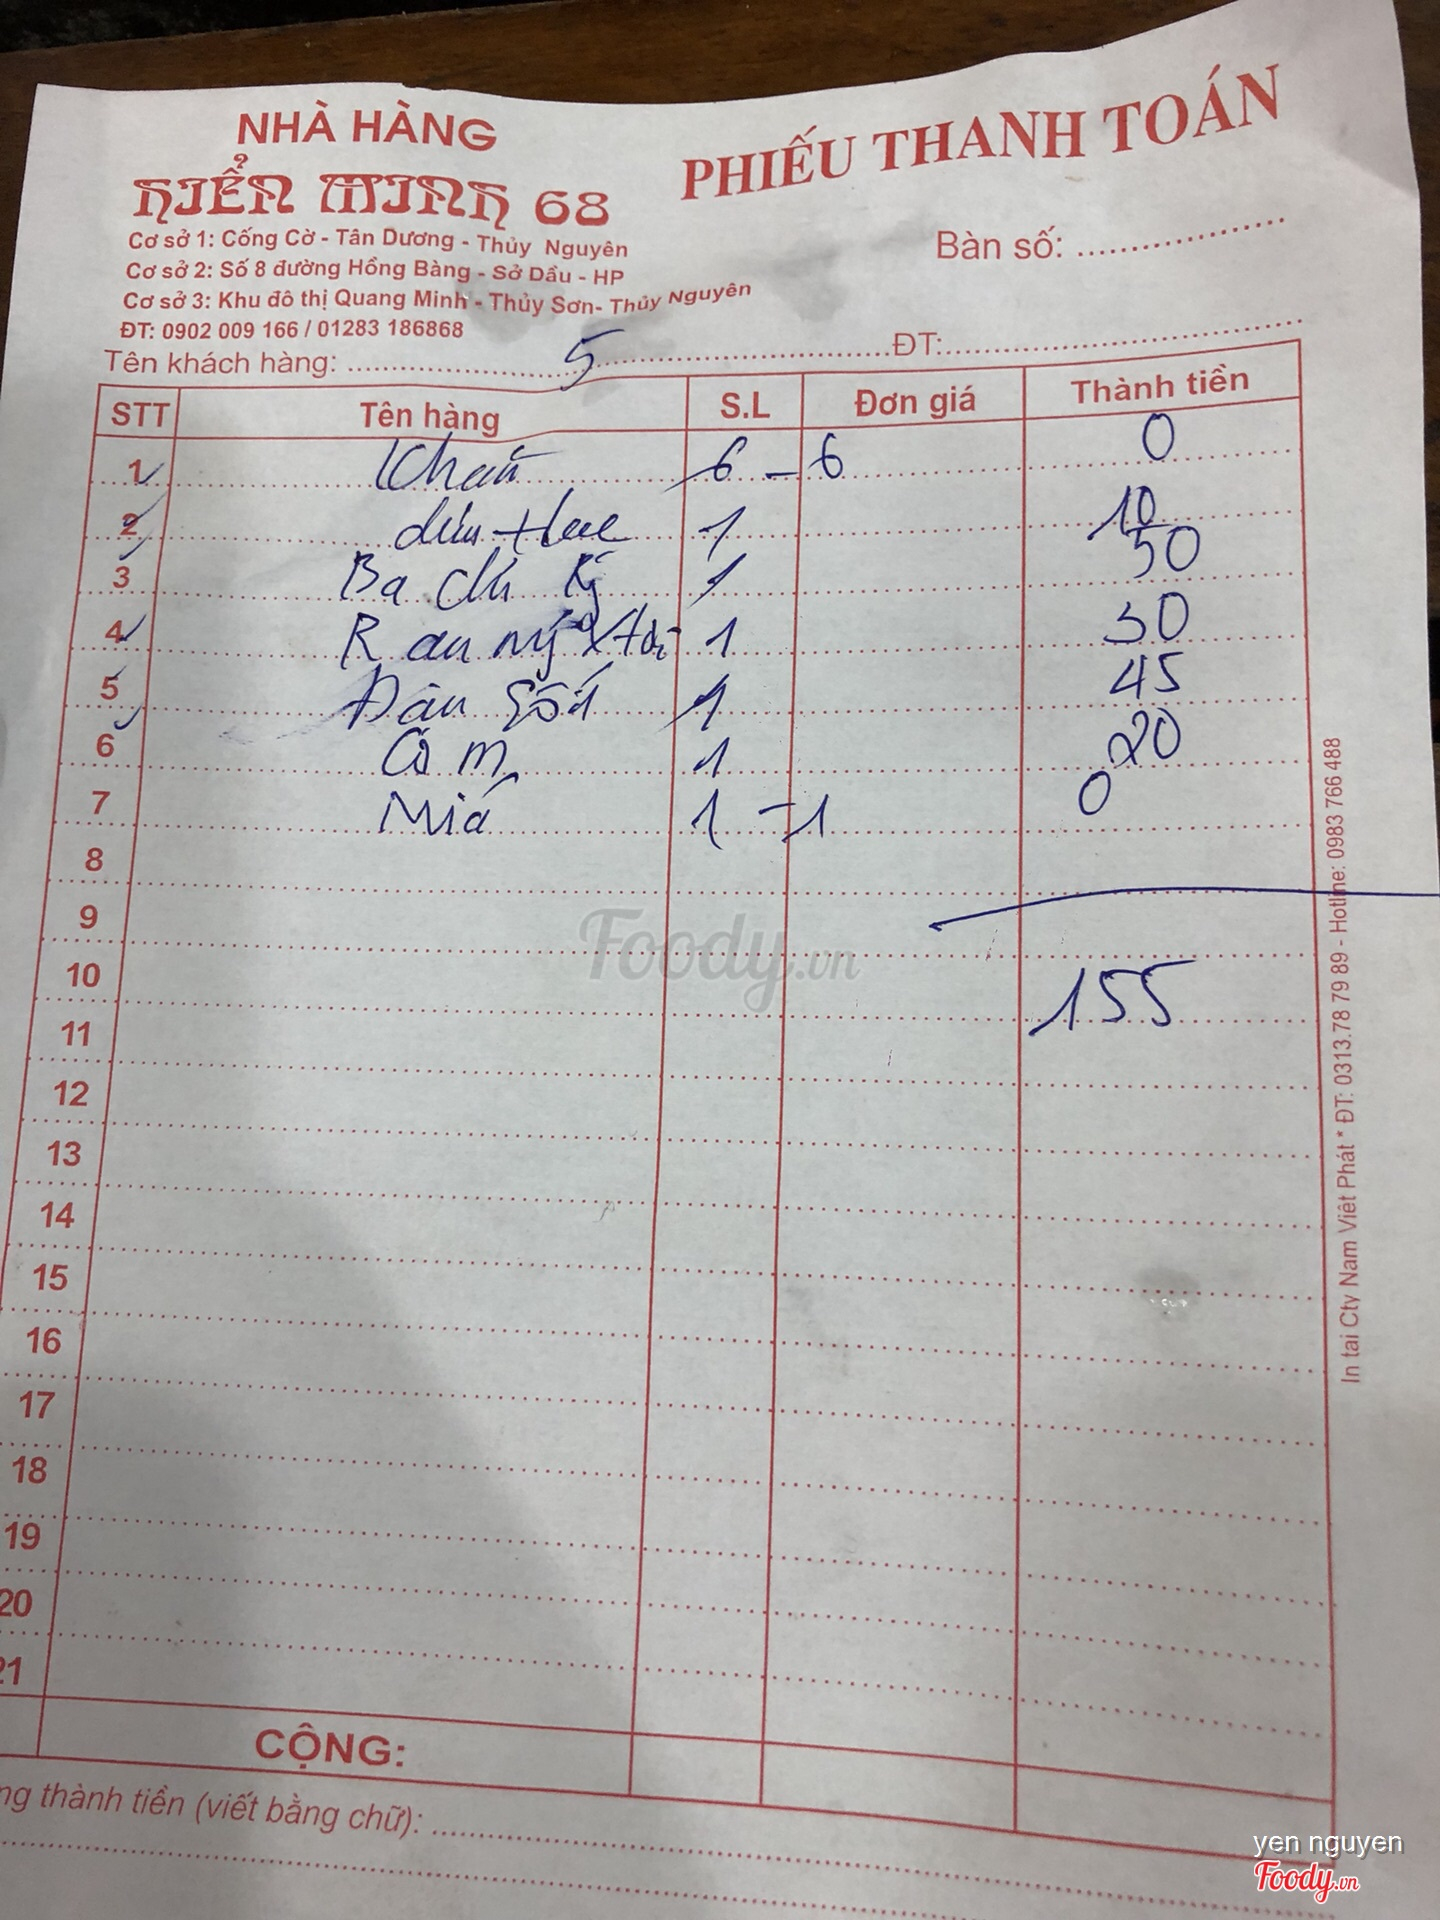 NHÀ HÀNG
HIỂN MINH 68
PHIẾU THANH TOÁN
Cơ sở 1: Cống Cờ - Tân Dương - Thủy Nguyên
Bàn số: ....................
Cơ sở 2: Số 8 đường Hồng Bàng - Sở Dầu - HP
Cơ sở 3: Khu đô thị Quang Minh - Thủy Sơn- Thủy Nguyên
ĐT: 0902 009 166 / 01283 186868
Tên khách hàng: .......... 5 .......... ĐT:..........
STT Tên hàng S.L Đơn giá Thành tiền
1 Khăn 6 - 6 0
2 1 10
3 Ba chỉ 1 50
4 Rau 1 30
5 Đậu sốt 1 45
6 Cơm 1 20
7 Mía 1 - 1 0
8
9
10 155
11
12
13
14
15
16
17
18
19
20
21
CỘNG:
ng thành tiền (viết bằng chữ): ..........
In tai Cty Nam Việt Phát * ĐT: 0313.78 79 89 - Hotline: 0983 766 488
Foody.vn
yen nguyen
Foody.vn